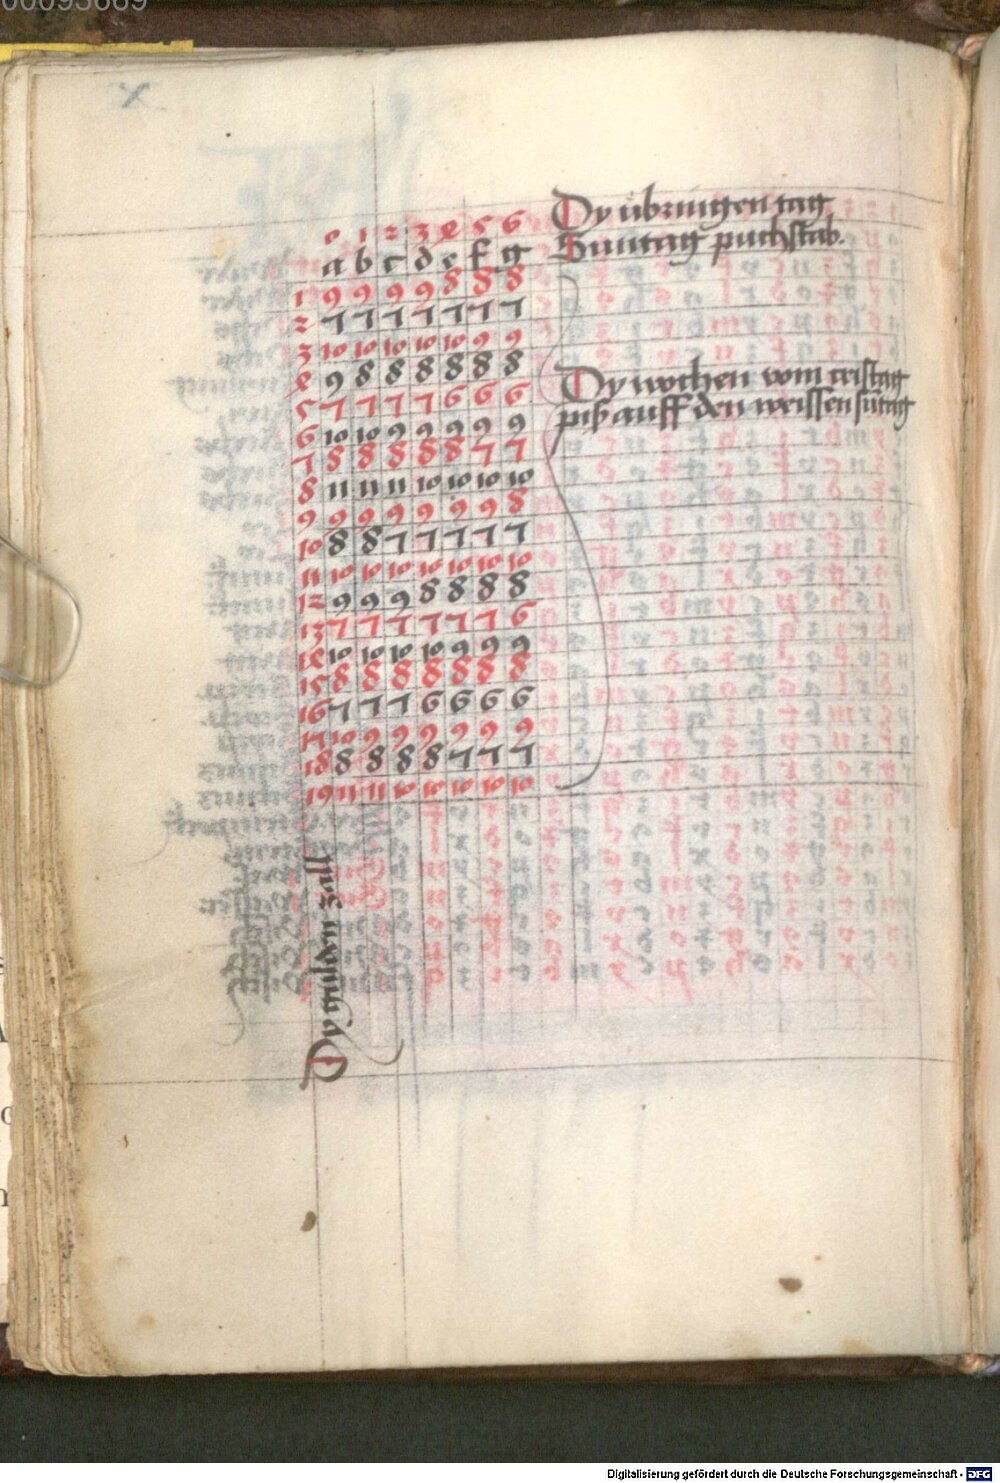 00093669
x
0 1 2 3 4 5 6 Dy ubringen tag
a b c d e f g Suntag puchstab.
1 9 9 9 9 8 8 8
2 7 7 7 7 7 7 7
3 10 10 10 10 10 9 9
4 9 8 8 8 8 8 8 Dy wochen vom cristag
5 7 7 7 7 6 6 6 piß auff den weissen sūtag
6 10 10 9 9 9 9 9
7 8 8 8 8 8 7 7
8 11 11 11 10 10 10 10
9 9 9 9 9 9 9 8
10 8 8 7 7 7 7 7
11 10 10 10 10 10 10 10
12 9 9 9 8 8 8 8
13 7 7 7 7 7 7 6
14 10 10 10 10 9 9 9
15 8 8 8 8 8 8 8
16 7 7 7 6 6 6 6
17 10 9 9 9 9 9 9
18 8 8 8 8 7 7 7
19 11 11 10 10 10 10 10
Dy gulden zall
Digitalisierung gefördert durch die Deutsche Forschungsgemeinschaft - DFG